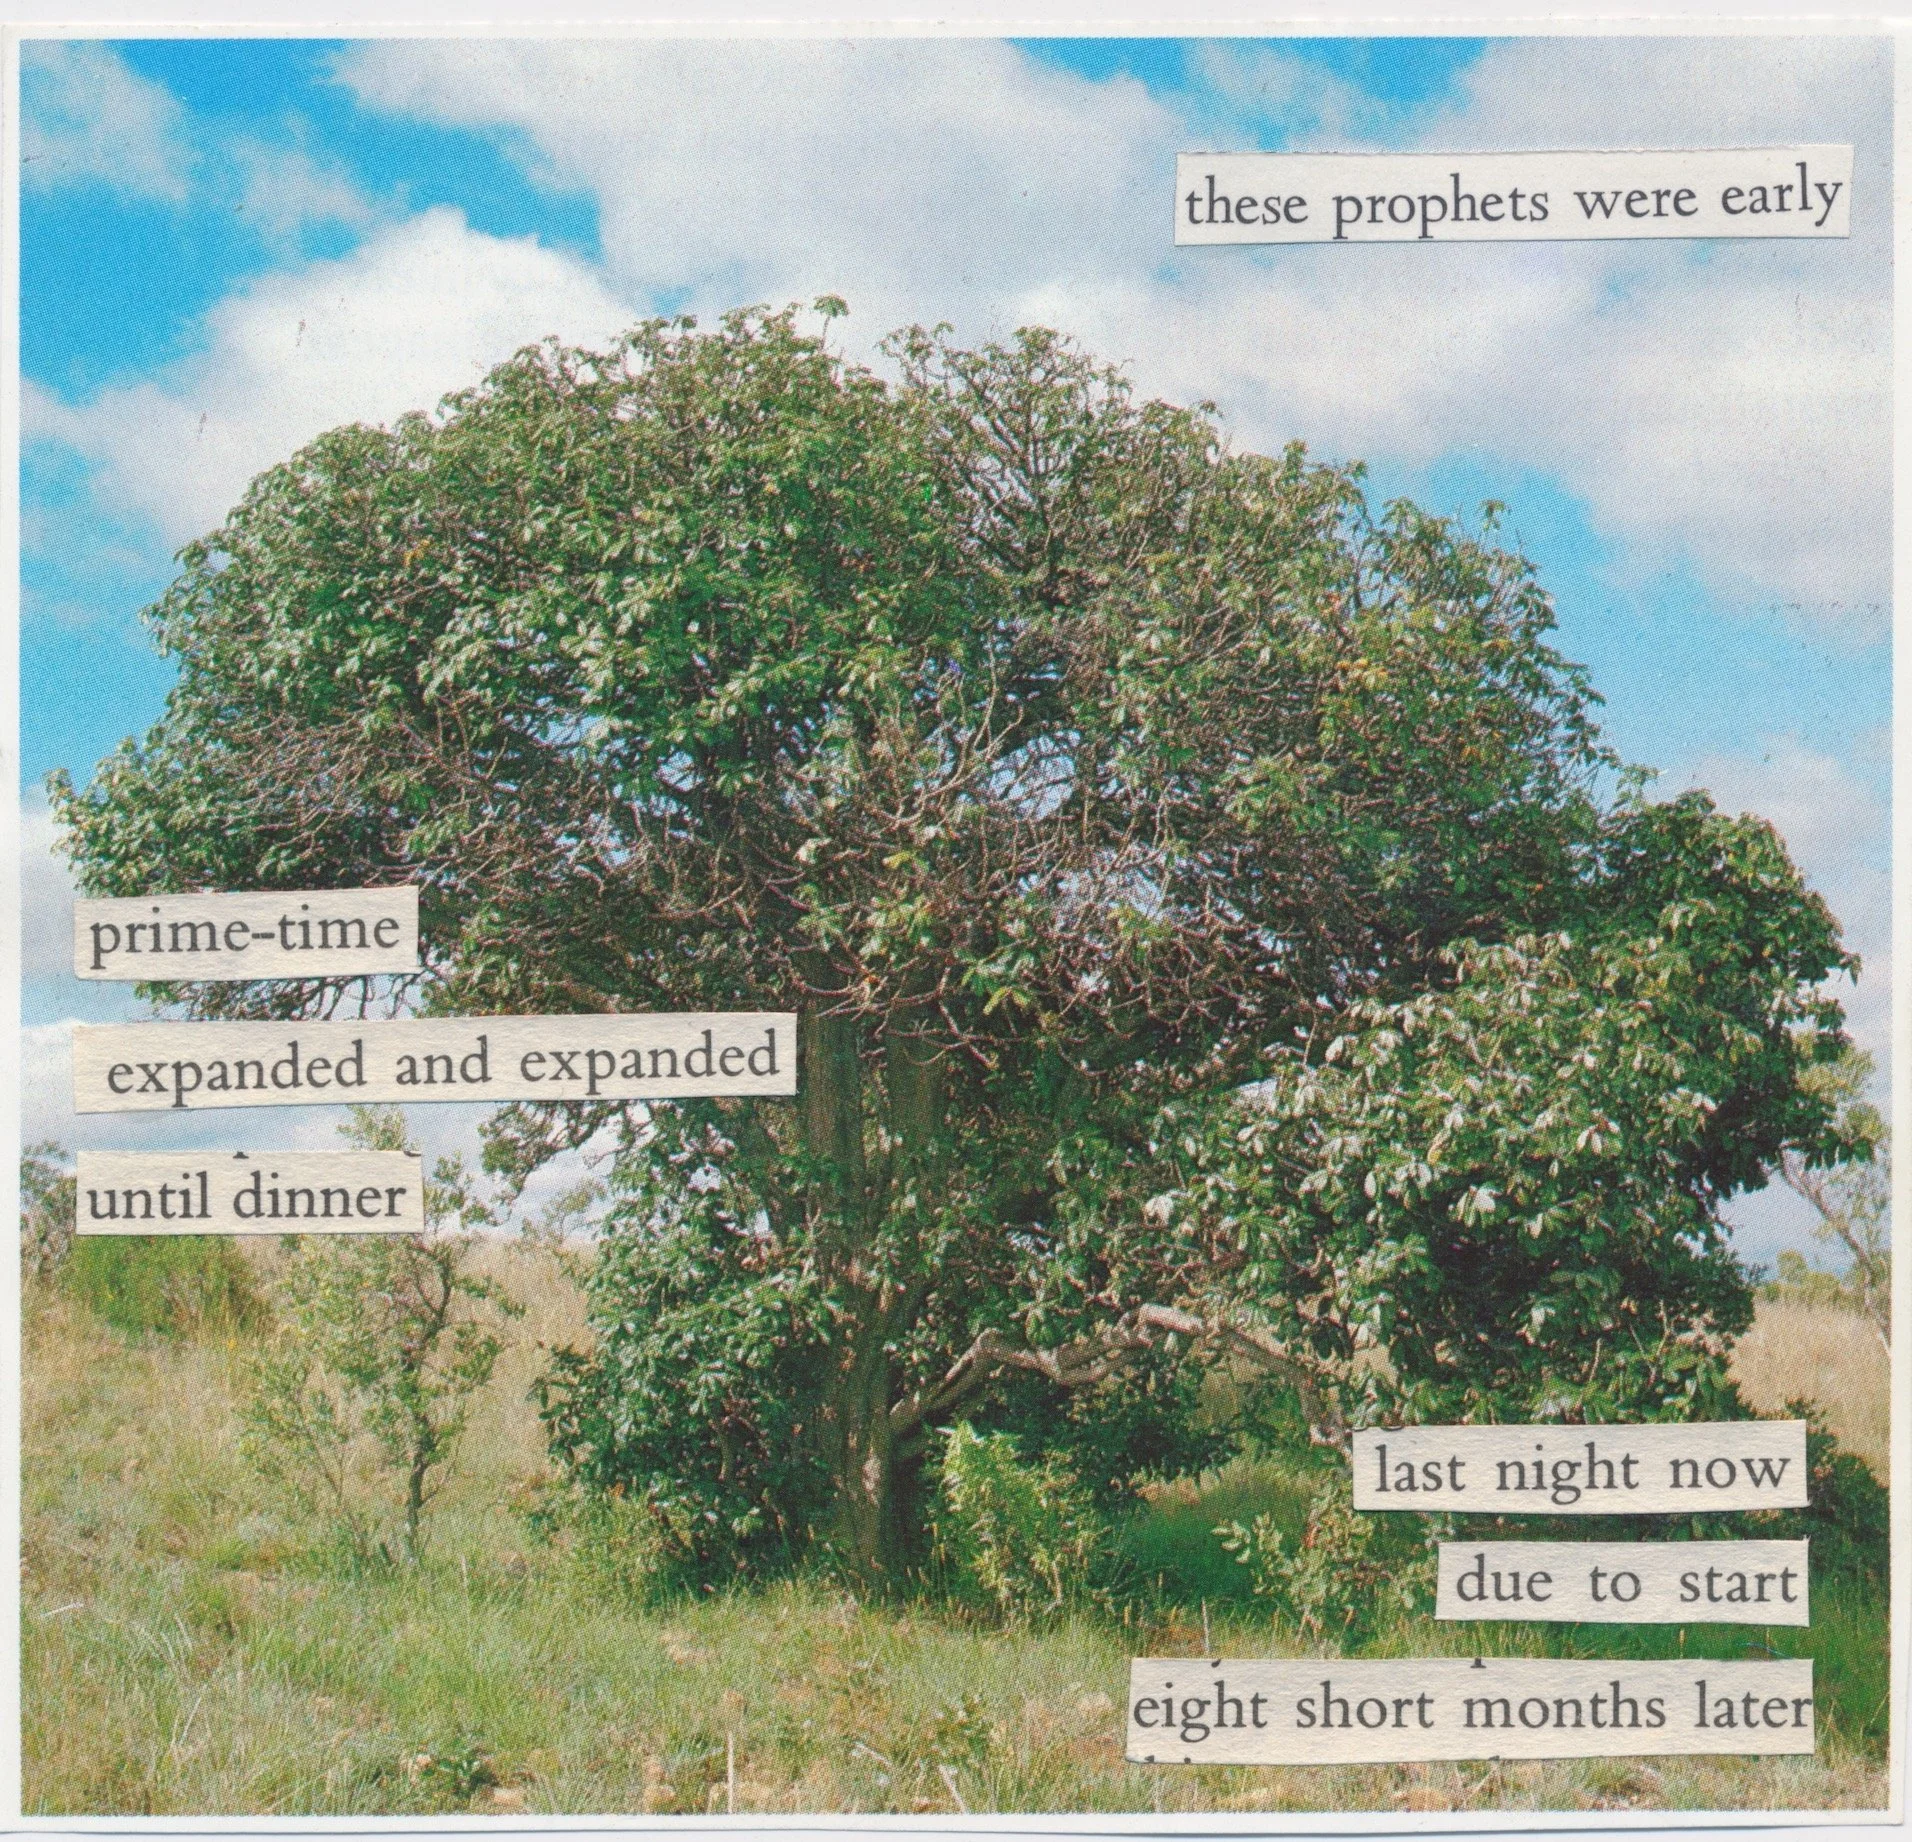 these prophets were early
prime-time
expanded and expanded
until dinner
last night now
due to start
eight short months later